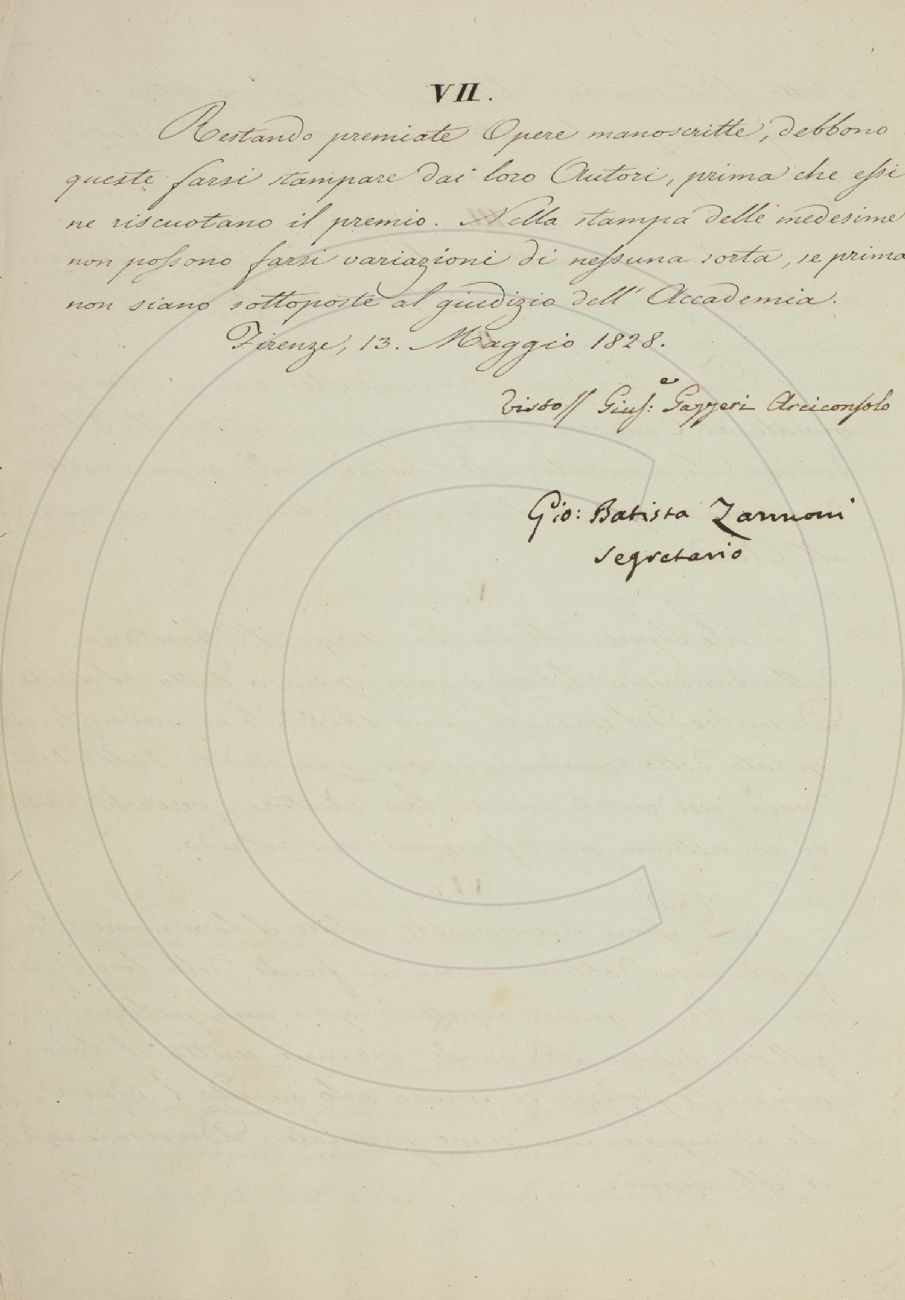 VII.
Restando premiate Opere manoscritte, debbono
queste farsi stampare dai loro Autori, prima che essi
ne riscuotano il premio. Nella stampa delle medesime
non possono farsi variazioni di nessuna sorta, se prima
non siano sottoposte al giudizio dell' Accademia.
Firenze, 13. Maggio 1828.
Visto// Gius:e Gazzeri Arciconsolo
Gio: Batista Zannoni
Segretario